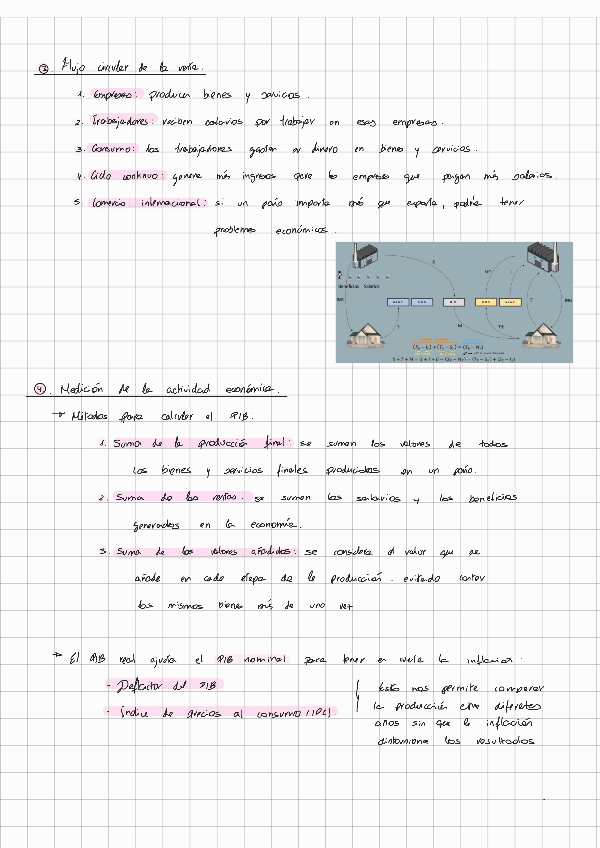 ③. Flujo circular de la renta.
1. Empresas: producen bienes y servicios.
2. Trabajadores: reciben salarios por trabajar en esas empresas.
3. Consumo: los trabajadores gastan su dinero en bienes y servicios.
4. Ciclo continuo: genera más ingresos para las empresas que pagan más salarios.
5. Comercio internacional: si un país importa más que exporta, podría tener
problemas económicos.
Beneficios Salarios
④. Medición de la actividad económica.
→ Métodos para calcular el PIB.
1. Suma de la producción final: se suman los valores de todos
los bienes y servicios finales producidos en un país.
2. Suma de las rentas: se suman los salarios y los beneficios
generados en la economía.
3. Suma de los valores añadidos: se considera el valor que se
añade en cada etapa de la producción. evitando contar
los mismos bienes más de una vez
→ El PIB real ajusta el PIB nominal para tener en cuenta la inflación.
- Deflactor del PIB
- Índice de precios al consumo (IPC)
Esto nos permite comparar
la producción entre diferentes
años sin que la inflación
distorsione los resultados